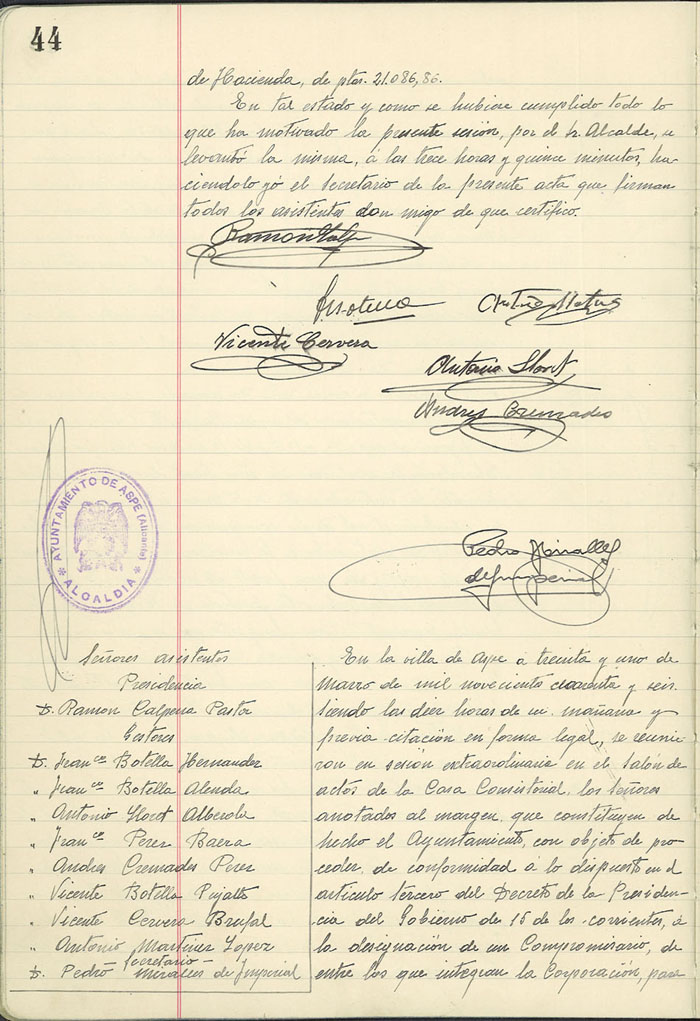 44
de Hacienda, de ptas. 21.086,86.
En tal estado y como se hubiese cumplido todo lo
que ha motivado la presente sesión, por el Sr. Alcalde, se
levantó la misma, á las trece horas y quince minutos, ha-
ciendolo yó el Secretario de la presente acta que firman
todos los asistentes con migo de que certifico.
Ramon
Vicente Cervera
Antonio Lloret
Andres Cremades
Pedro Miralles
de Imperial
AYUNTAMIENTO DE ASPE (Alicante)
* ALCALDIA *
Señores asistentes
Presidencia
D. Ramon Calpena Pastor
Gestores
D. Francco Botella Hernandez
" Francco Botella Alenda
" Antonio Lloret Alberola
" Francco Perez Baera
" Andres Cremades Perez
" Vicente Botella Pujalte
" Vicente Cervera Brufal
" Antonio Martinez Lopez
Secretario
D. Pedro Miralles de Imperial
En la villa de Aspe a treinta y uno de
Marzo de mil novecientos cuarenta y seis;
siendo las diez horas de su mañana y
previa citación en forma legal, se reunie-
ron en sesión extraordinaria en el Salón de
actos de la Casa Consistorial, los señores
anotados al margen, que constituyen de
hecho el Ayuntamiento, con objeto de pro-
ceder, de conformidad á lo dispuesto en el
articulo tercero del Decreto de la Presiden-
cia del Gobierno de 15 de los corrientes, á
la designación de un Compromisario, de
entre los que integran la Corporación, para